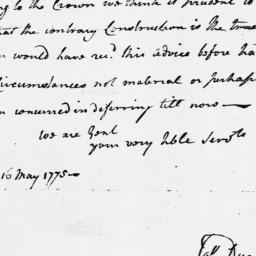 to the Crown we think it prudent to
the contrary Construction is the true
would have rec.d this advice before
Circumstances not material or perhaps
concurred in deferring till now —
We are Gent
your very hble Servts
16 May 1775 —